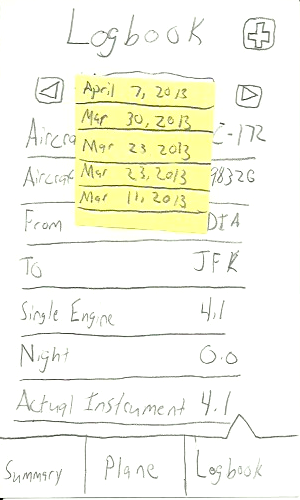 Logbook
April 7, 2013
Mar 30, 2013
Mar 23 2013
Mar 23, 2013
Mar 11, 2013
Aircra C-172
Aircraf 9832G
From DIA
To JFK
Single Engine 4.1
Night 0.0
Actual Instrument 4.1
Summary Plane Logbook